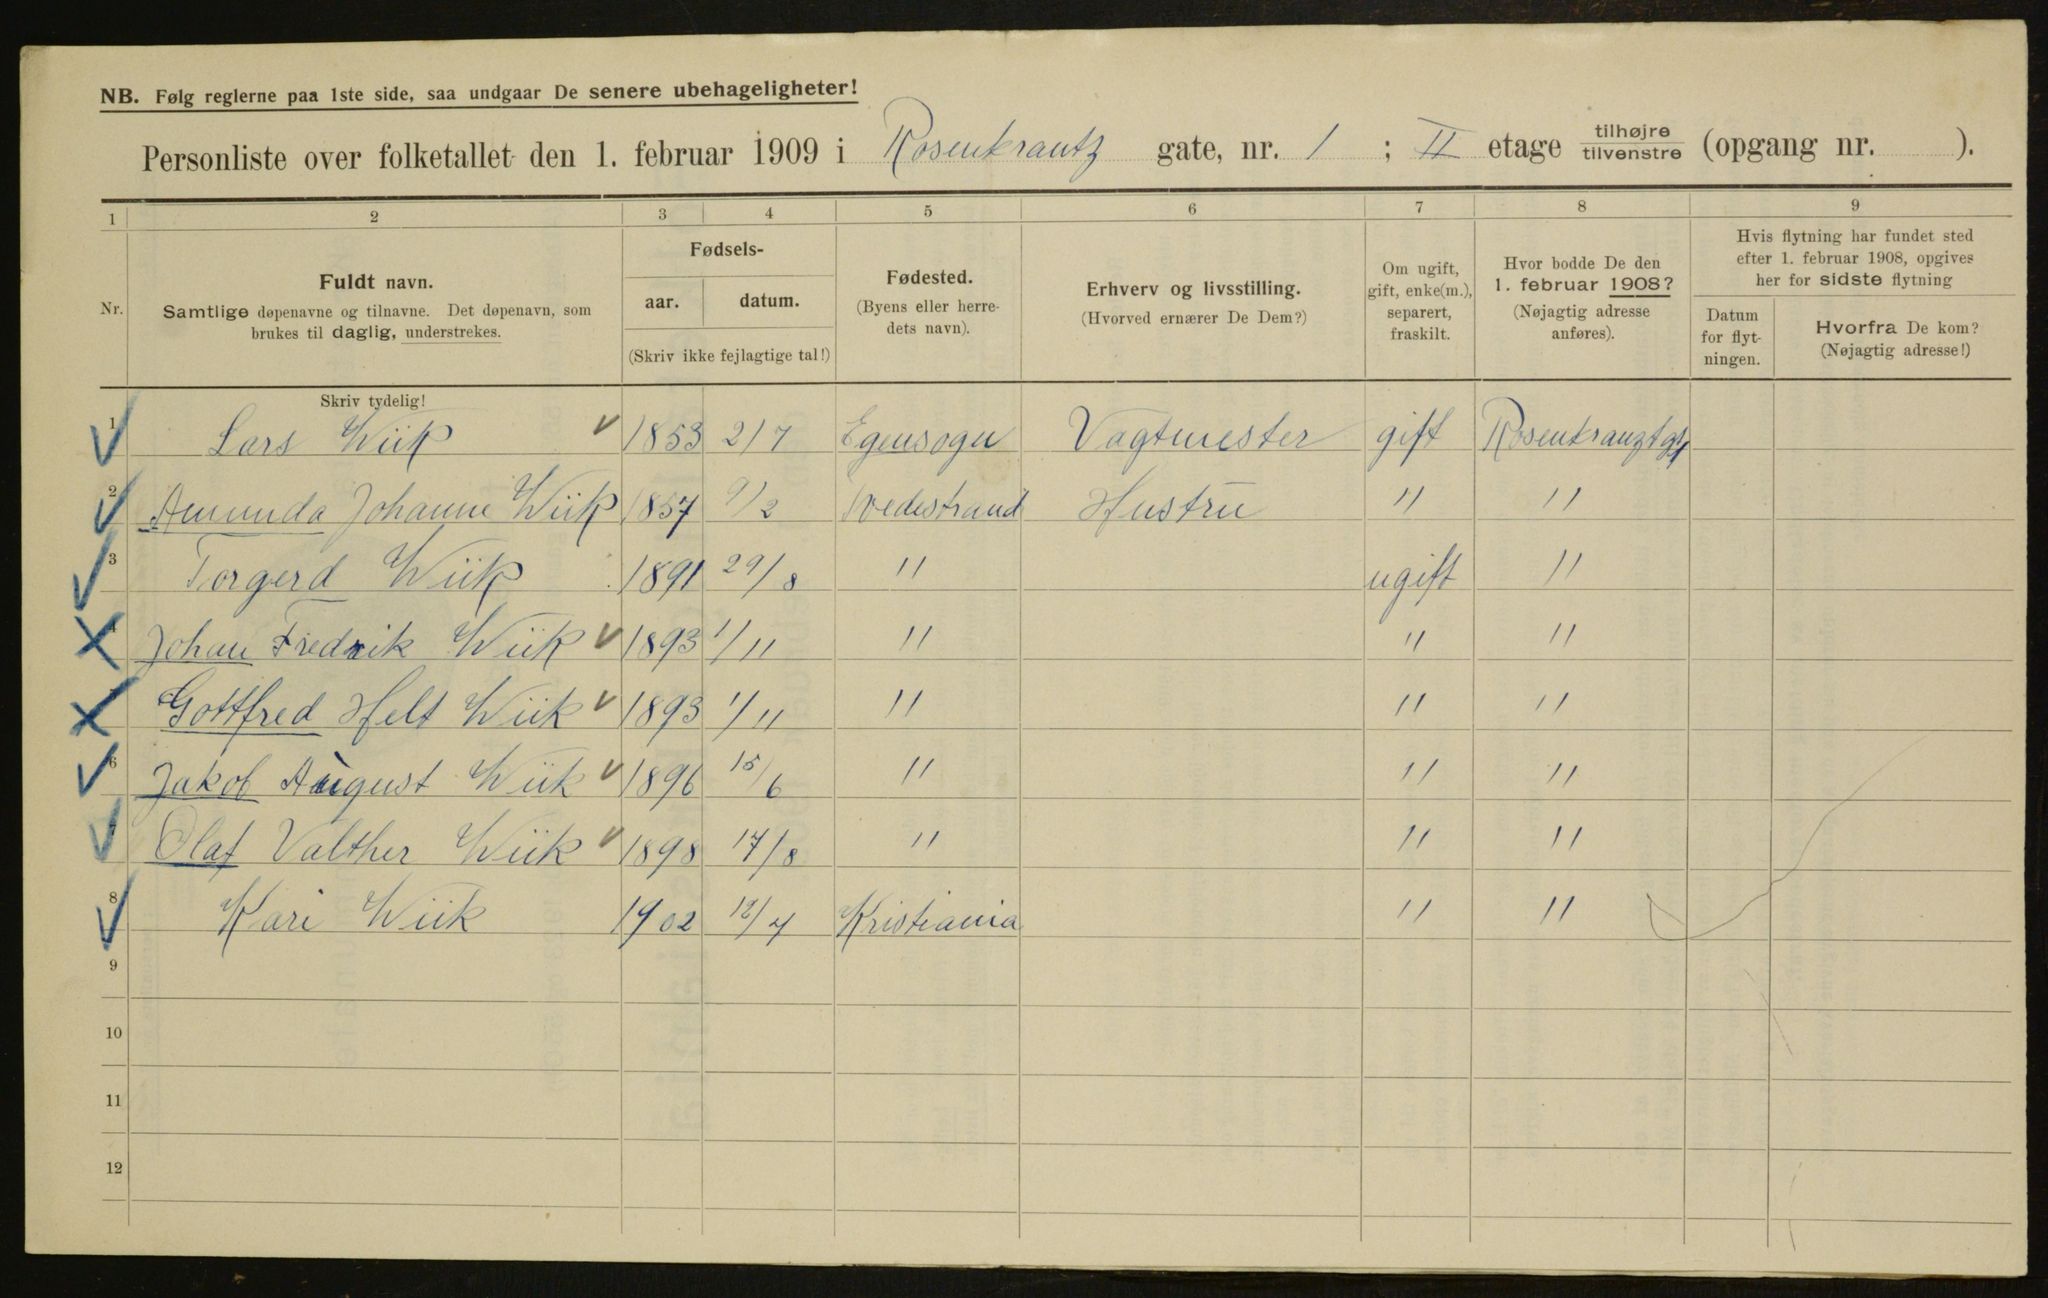 NB. Følg reglerne paa 1ste side, saa undgaar De senere ubehageligheter!
Personliste over folketallet den 1. februar 1909 i Rosenkrantz gate, nr. 1 ; II etage tilhøjre/tilvenstre (opgang nr. ).
1 2 3 4 5 6 7 8 9
Nr.
Fuldt navn.
Samtlige døpenavne og tilnavne. Det døpenavn, som
brukes til daglig, understrekes.
Fødsels-
aar. datum.
(Skriv ikke fejlagtige tal!)
Fødested.
(Byens eller herre-
dets navn).
Erhverv og livsstilling.
(Hvorved ernærer De Dem?)
Om ugift,
gift, enke(m.),
separert,
fraskilt.
Hvor bodde De den
1. februar 1908?
(Nøjagtig adresse
anføres).
Hvis flytning har fundet sted
efter 1. februar 1908, opgives
her for sidste flytning
Datum
for flyt-
ningen.
Hvorfra De kom?
(Nøjagtig adresse!)
Skriv tydelig!
1 Lars Wiik 1853 2/7 Egensogn Vagtmester gift Rosenkranztgt 1
2 Amunda Johanne Wiik 1857 9/2 Tvedestrand Hustru " "
3 Torgerd Wiik 1891 29/8 " ugift "
4 Johan Fredrik Wiik 1893 1/11 " " "
5 Gottfred Helt Wiik 1893 1/11 " " "
6 Jakob August Wiik 1896 15/6 " " "
7 Olaf Valther Wiik 1898 17/8 " " "
8 Kari Wiik 1902 12/7 Kristiania " "
9
10
11
12